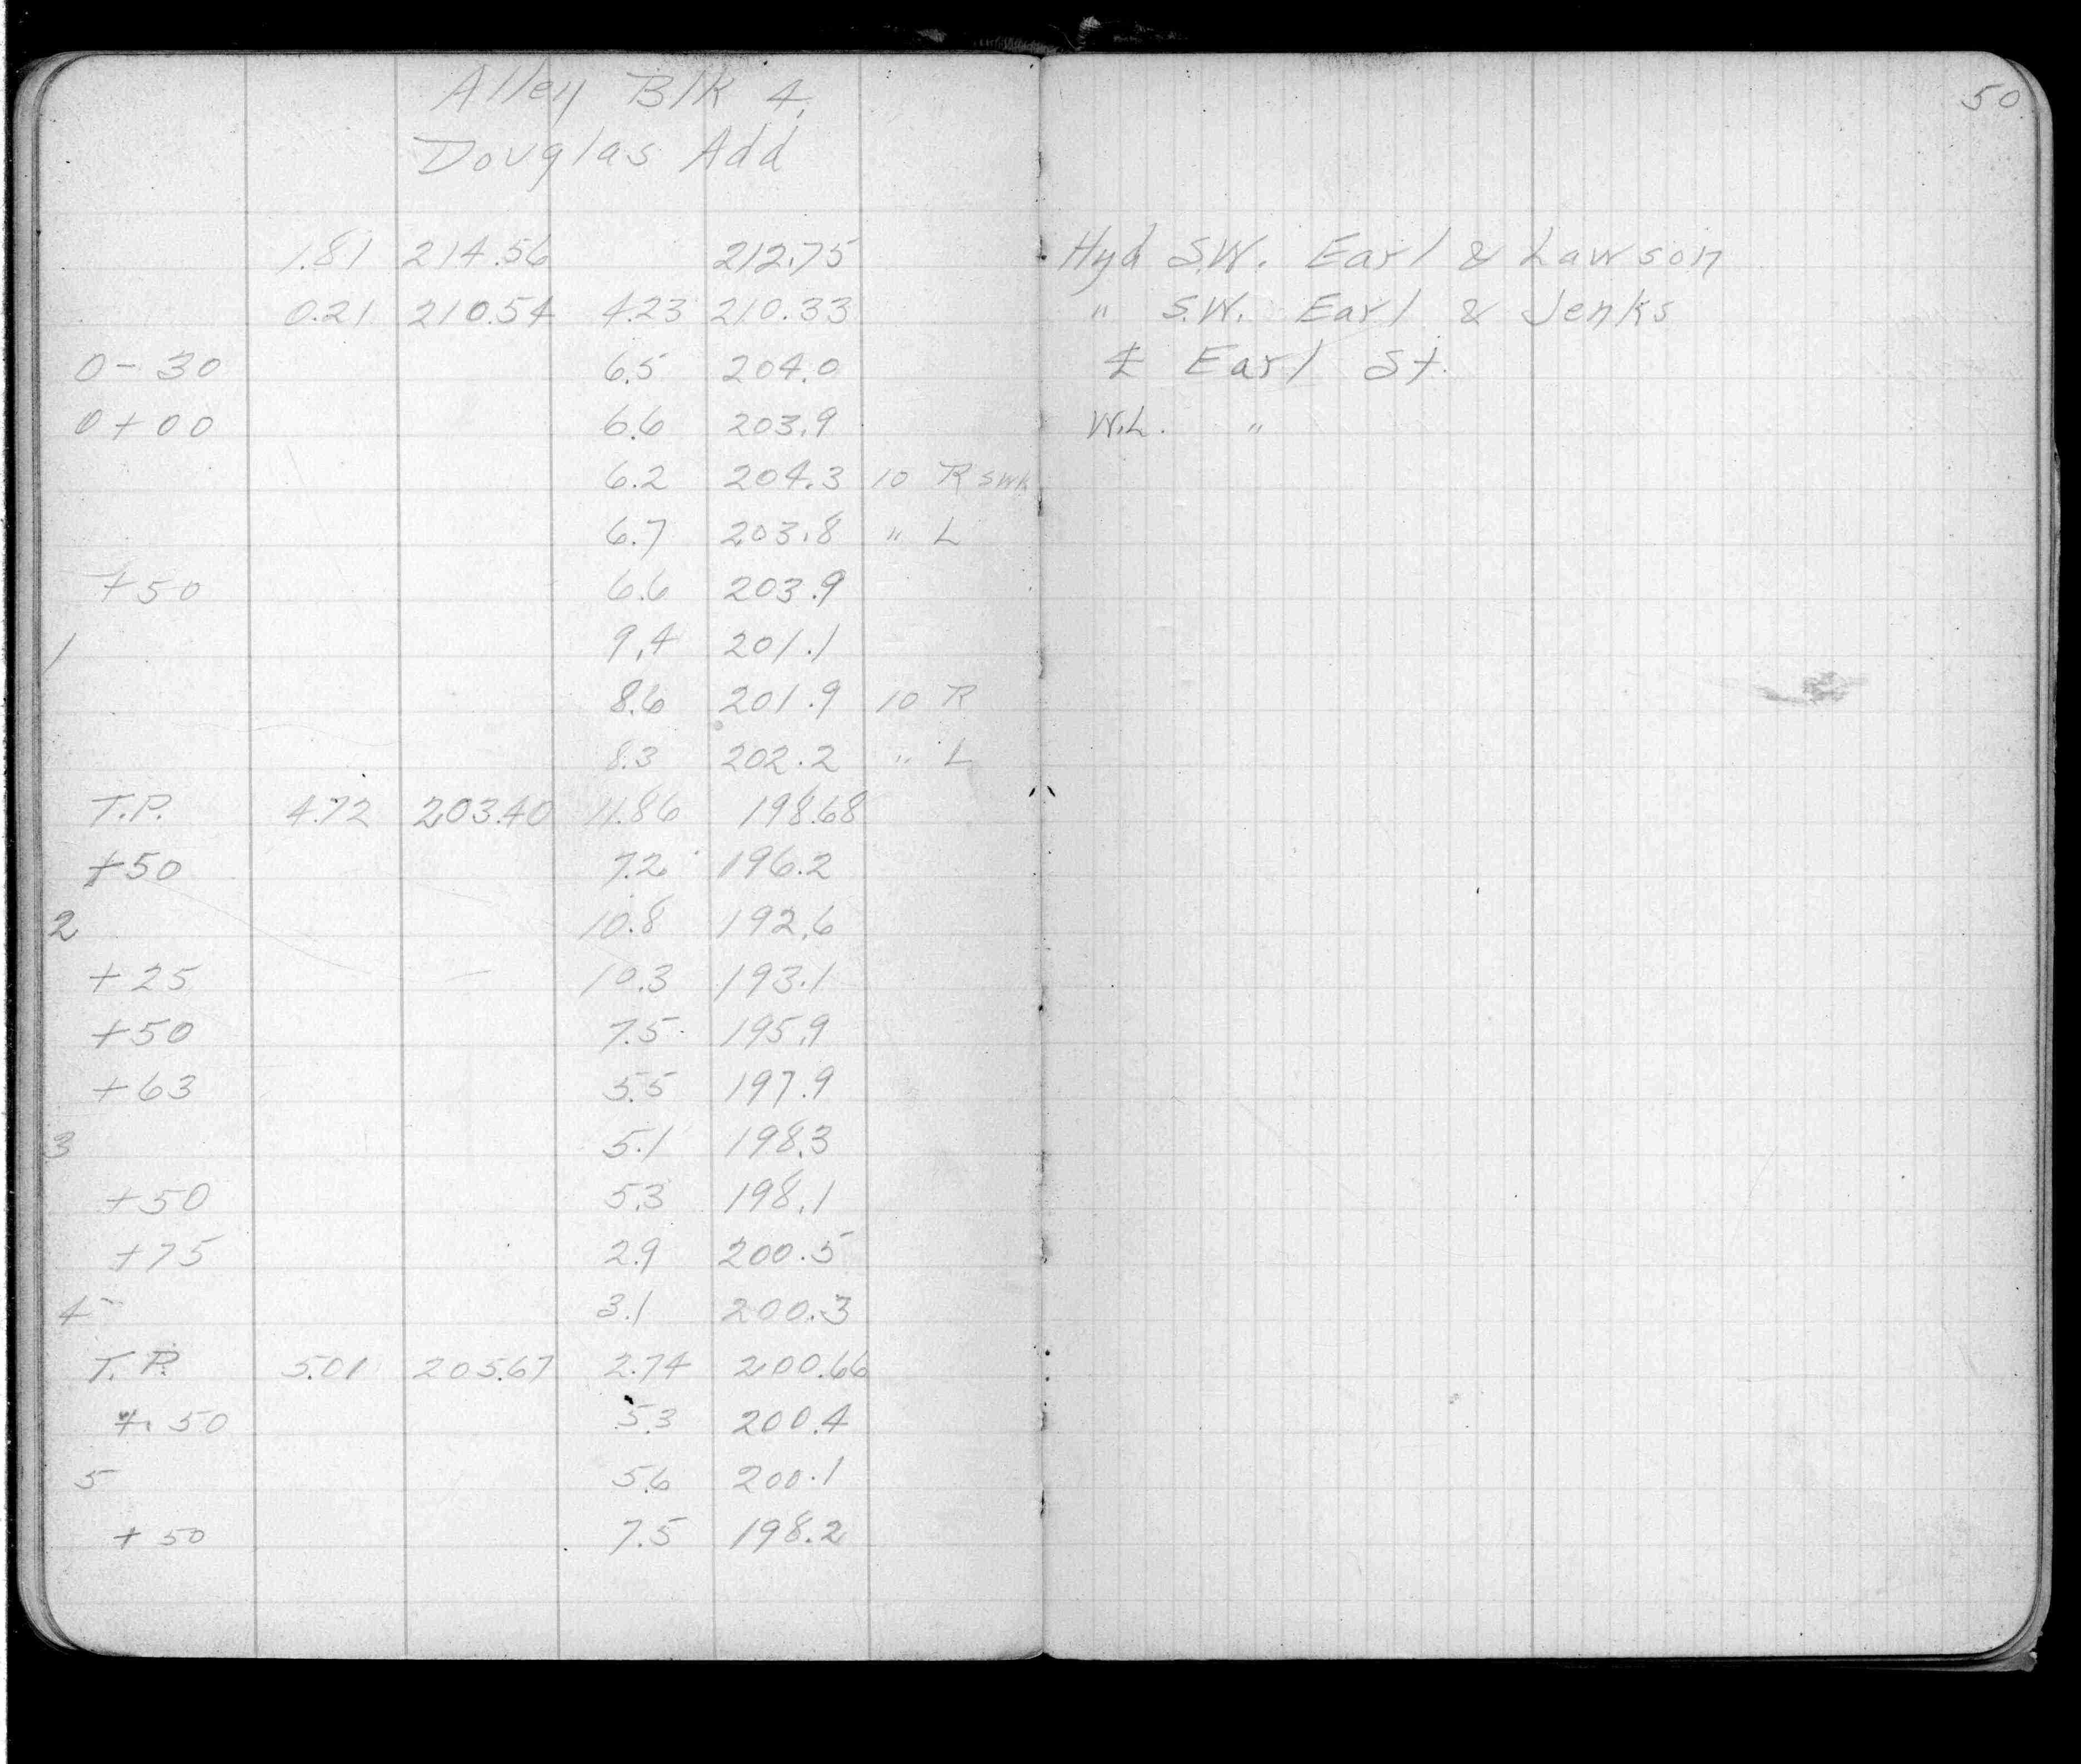 Alley Blk 4.
Douglas Add
50
1.81 214.56 212.75 Hyd S.W. Earl & Lawson
0.21 210.54 4.23 210.33 " S.W. Earl & Jenks
0-30 6.5 204.0 ℄ Earl St.
0+00 6.6 203.9 W.L. "
6.2 204.3 10 R swk
6.7 203.8 " L
+50 6.6 203.9
1 9.4 201.1
8.6 201.9 10 R
8.3 202.2 " L
T.P. 4.72 203.40 11.86 198.68
+50 7.2 196.2
2 10.8 192.6
+25 10.3 193.1
+50 7.5 195.9
+63 5.5 197.9
3 5.1 198.3
+50 5.3 198.1
+75 2.9 200.5
4 3.1 200.3
T.P. 5.01 205.67 2.74 200.66
+50 5.3 200.4
5 5.6 200.1
+50 7.5 198.2